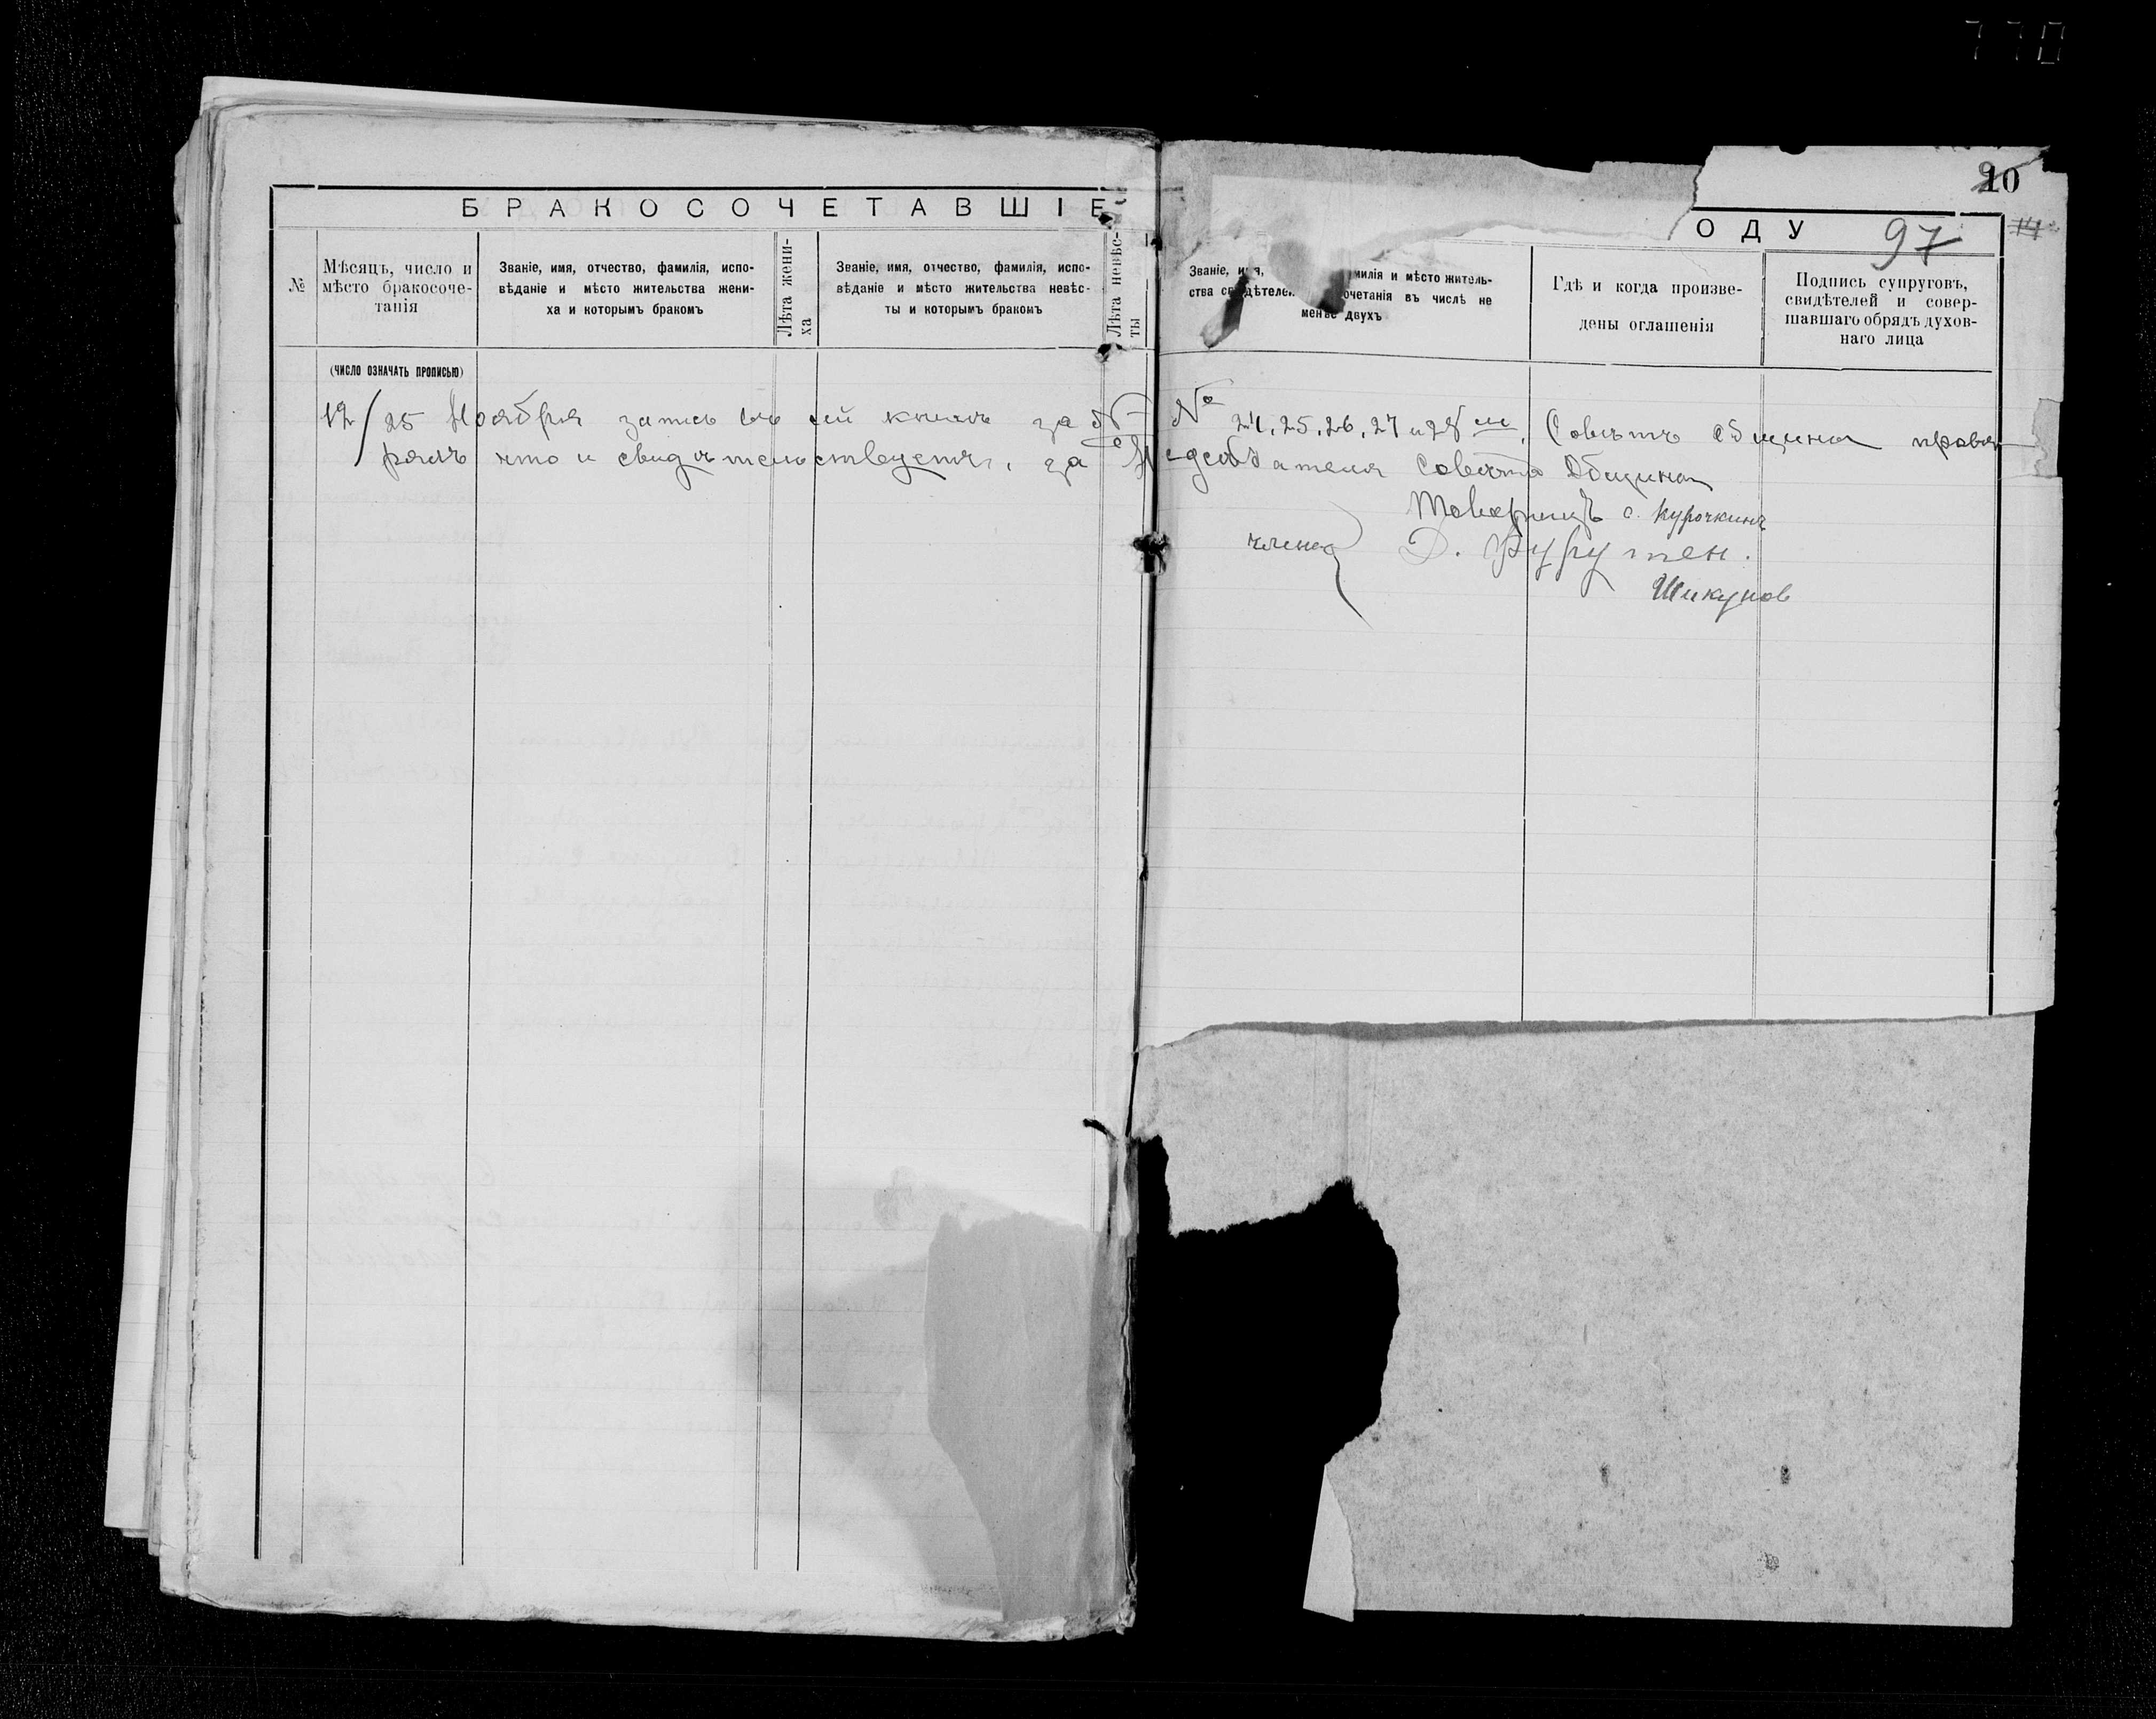 770
10
97
БРАКОСОЧЕТАВШІЕ
ОДУ
№
Мѣсяцъ, число и
мѣсто бракосоче-
танія
Званіе, имя, отчество, фамилія, испо-
вѣданіе и мѣсто жительства жени-
ха и которымъ бракомъ
Лѣта жени-
ха
Званіе, имя, отчество, фамилія, испо-
вѣданіе и мѣсто жительства невѣс-
ты и которымъ бракомъ
Лѣта невѣс-
ты
Званіе, милія и мѣсто житель-
ства очетанія въ числѣ не
менѣе двухъ
Гдѣ и когда произве-
дены оглашенія
Подпись супруговъ,
свидѣтелей и совер-
шавшаго обрядъ духов-
наго лица
(ЧИСЛО ОЗНАЧАТЬ ПРОПИСЬЮ)
12/25 Ноября запись въ сей книгѣ за № № 24, 25, 26, 27 и 28 м Совѣтъ общины провѣ-
рялъ что и свидѣтельствуетъ, за Предсѣдателя Совѣта Общины
Товарищъ С. Курочкинъ
члены Д.
Шикунов